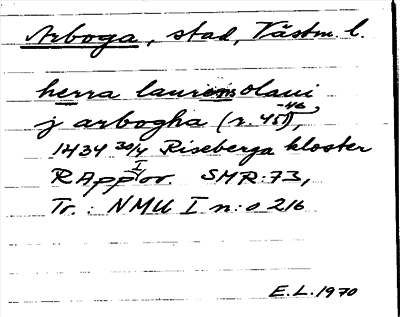 Arboga, stad, Västm. l.
herra laurens olaui
j arbogha (r. 45-46),
1434 30/4 Riseberga kloster
RApp I or. SMR: 73,
Tr.: NMU I n:o 216
E.L. 1970